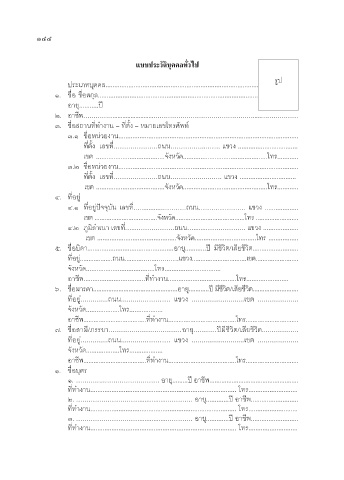 ๑๔๔
แบบประวัติบุคคลทั่วไป
รูป
ประเภทบุคคล........................................................................
๑. ชื่อ ชื่อสกุล........................................................................
อายุ..........ปี
๒. อาชีพ........................................................................
๓. ชื่อสถานที่ทำงาน – ที่ตั้ง – หมายเลขโทรศัพท์
๓.๑ ชื่อหน่วยงาน........................................................................
ที่ตั้ง เลขที่......................ถนน........................ แขวง ............................
เขต .................................จังหวัด.......................................โทร..........
๓.๒ ชื่อหน่วยงาน........................................................................
ที่ตั้ง เลขที่......................ถนน........................ แขวง ............................
เขต .................................จังหวัด.......................................โทร..........
๔. ที่อยู่
๔.๑ ที่อยู่ปัจจุบัน เลขที่.........................ถนน....................... แขวง ................
เขต ..............................จังหวัด.................................โทร ...................
๔.๒ ภูมิลำเนา เลขที่........................ถนน................................... แขวง ......................
เขต .....................................จังหวัด...................................โทร ..............
๕. ชื่อบิดา.........................................อายุ..........ปี มีชีวิต/เสียชีวิต......................
ที่อยู่...............ถนน.........................แขวง..........................เขต..................
จังหวัด................................โทร...........................
อาชีพ..............................ที่ทำงาน................................โทร.........................
๖. ชื่อมารดา........................................อายุ.........ปี มีชีวิต/เสียชีวิต......................
ที่อยู่.............ถนน......................... แขวง ..........................เขต ...................
จังหวัด................โทร................
อาชีพ..............................ที่ทำงาน................................โทร.................
๗. ชื่อสามี/ภรรยา...................................อายุ...........ปีมีชีวิต/เสียชีวิต..................
ที่อยู่.............ถนน......................... แขวง ..........................เขต ...................
จังหวัด................โทร................
อาชีพ..............................ที่ทำงาน................................โทร.................
๘. ชื่อบุตร
๑. ........................................ อายุ........ปี อาชีพ..........................................
ที่ทำงาน..................................................................... โทร.......................
๒. ........................................................ อายุ..........ปี อาชีพ......................
ที่ทำงาน..................................................................... โทร.......................
๓. ........................................................ อายุ..........ปี อาชีพ......................
ที่ทำงาน..................................................................... โทร.......................